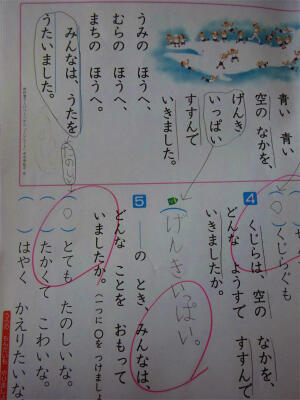 青い 青い
空の なかを、
げんき
いっぱい
すすんで
いきました。
うみの ほうへ、
むらの ほうへ、
まちの ほうへ。
みんなは、うたを
うたいました。
たのしい
くじらぐも
4
くじらは、空の なかを、
どんな ようすで すすんで
いきましたか。
げんきいっぱい。
5
の とき、みんなは、
どんな ことを おもって
いましたか。(一つに○を つけましょ
(○) とても たのしいな。
( ) たかくて こわいな。
( ) はやく かえりたいな